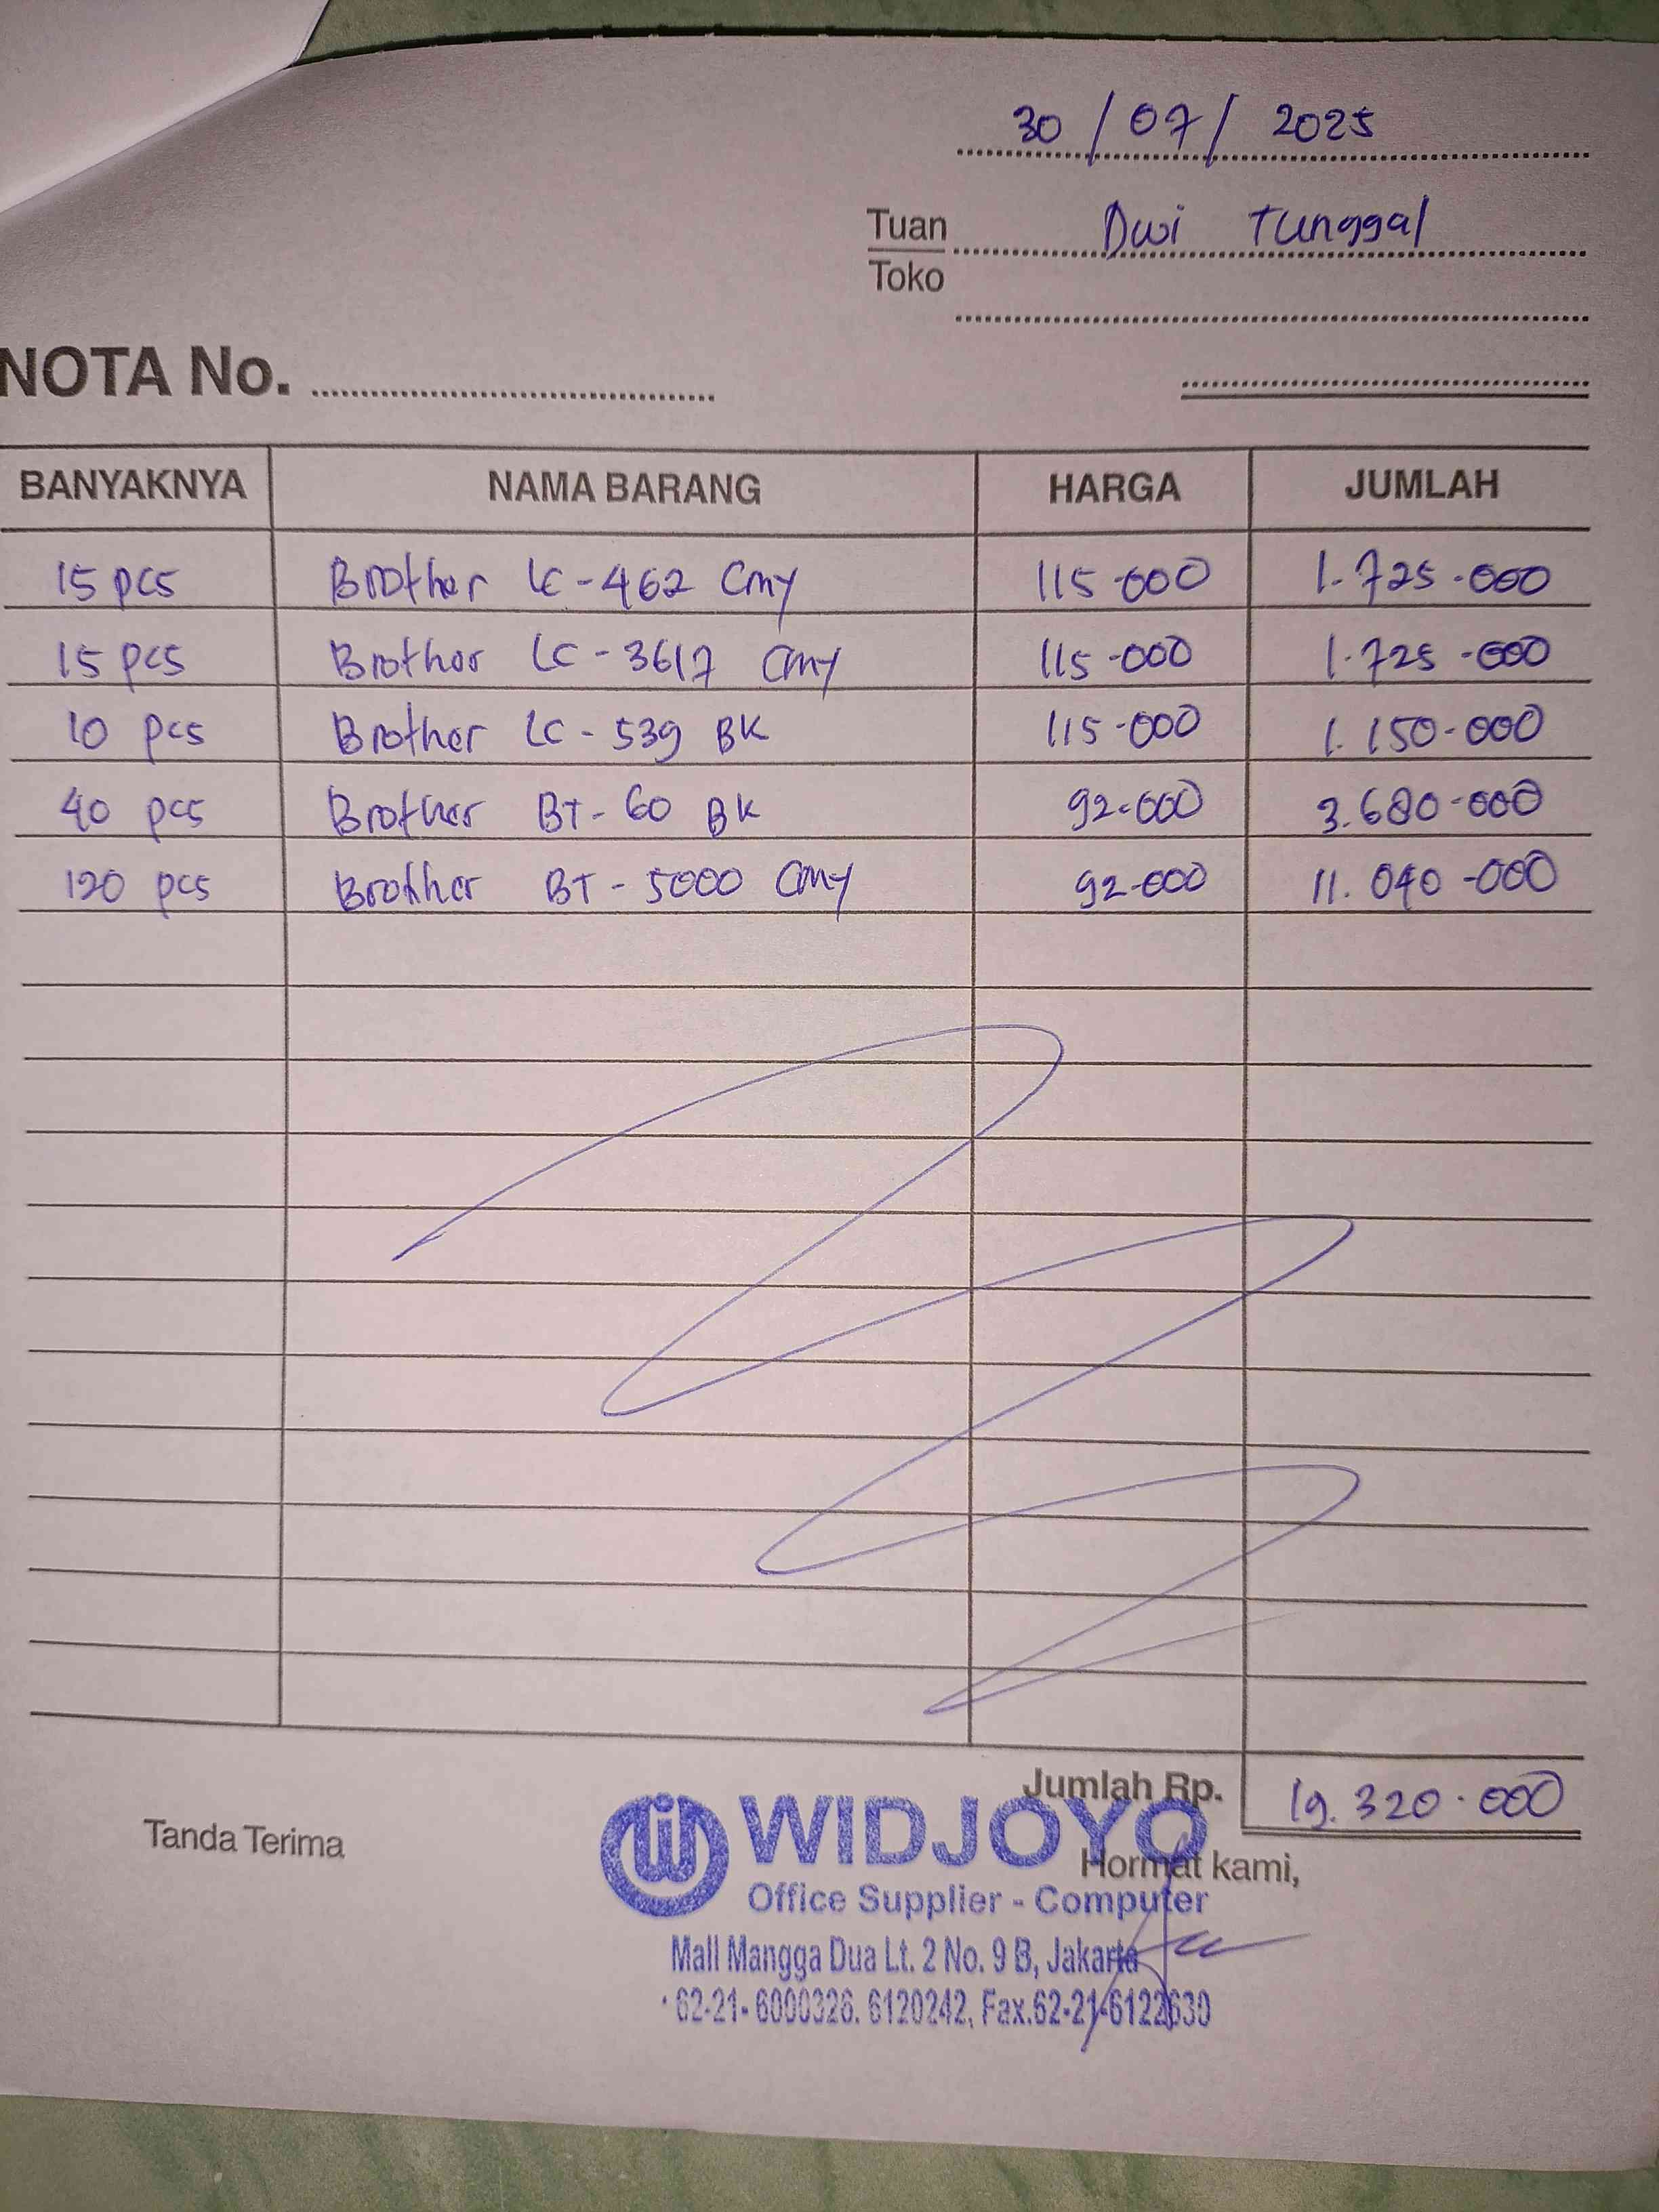 30 / 07 / 2025
Tuan Dwi Tunggal
Toko
NOTA No.
BANYAKNYA NAMA BARANG HARGA JUMLAH
15 pcs Brother LC-462 CMY 115.000 1.725.000
15 pcs Brother LC-3617 CMY 115.000 1.725.000
10 pcs Brother LC-539 BK 115.000 1.150.000
40 pcs Brother BT-60 BK 92.000 3.680.000
120 pcs Brother BT-5000 CMY 92.000 11.040.000
Jumlah Rp. 19.320.000
Tanda Terima
WIDJOYO
Hormat kami,
Office Supplier - Computer
Mall Mangga Dua Lt. 2 No. 9 B, Jakarta
62-21- 6000326. 6120242, Fax.62-21-6122630